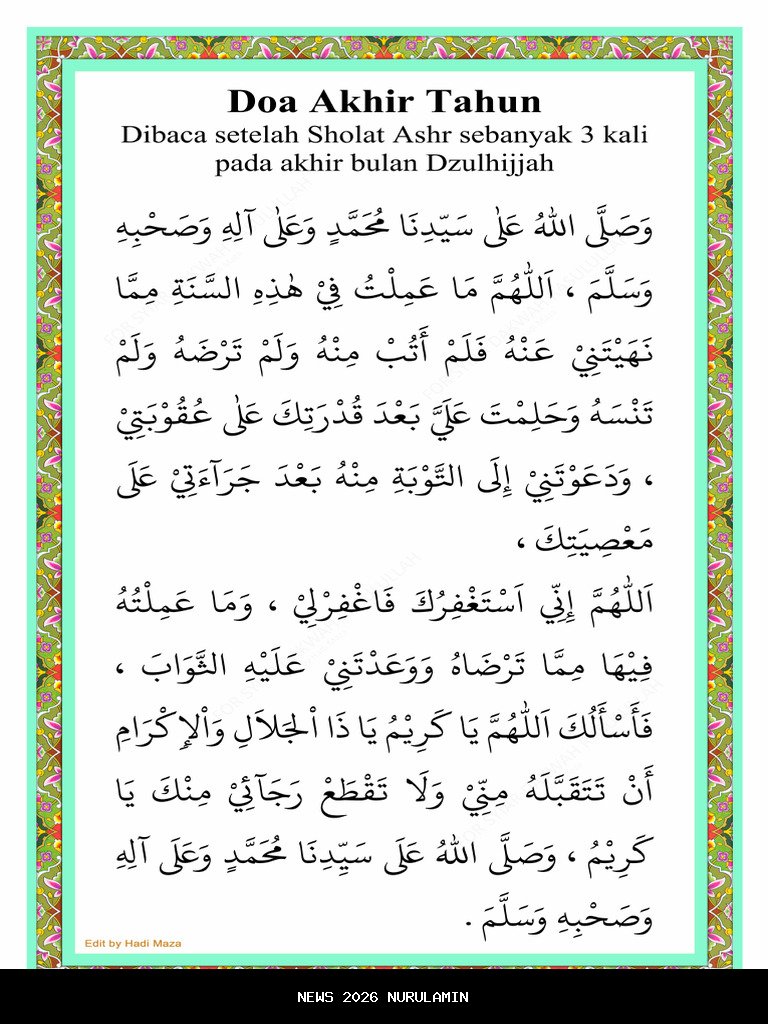 Doa Akhir Tahun
Dibaca setelah Sholat Ashr sebanyak 3 kali
pada akhir bulan Dzulhijjah
وَصَلَّى اللهُ عَلٰى سَيّدِنَا مُحَمَّدٍ وَعَلٰى آلِهِ وَصَحْبِهِ
وَسَلَّمَ ، اَللّٰهُمَّ مَا عَمِلْتُ فِيْ هٰذِهِ السَّنَةِ مِمَّا
نَهَيْتَنِيْ عَنْهُ فَلَمْ أَتُبْ مِنْهُ وَلَمْ تَرْضَهُ وَلَمْ
تَنْسَهُ وَحَلِمْتَ عَلَيَّ بَعْدَ قُدْرَتِكَ عَلٰى عُقُوْبَتِيْ
، وَدَعَوْتَنِيْ إِلَى التَّوْبَةِ مِنْهُ بَعْدَ جَرَآءَتِيْ عَلَى
مَعْصِيَتِكَ ،
اَللّٰهُمَّ إِنِّي اَسْتَغْفِرُكَ فَاغْفِرْلِيْ ، وَمَا عَمِلْتُهُ
فِيْهَا مِمَّا تَرْضَاهُ وَوَعَدْتَنِيْ عَلَيْهِ الثَّوَابَ ،
فَأَسْأَلُكَ اَللّٰهُمَّ يَا كَرِيْمُ يَا ذَا الْجَلاَلِ وَاْلإِكْرَامِ
أَنْ تَتَقَبَّلَهُ مِنِّيْ وَلَا تَقْطَعْ رَجَآئِيْ مِنْكَ يَا
كَرِيْمُ ، وَصَلَّى اللهُ عَلَى سَيِّدِنَا مُحَمَّدٍ وَعَلَى آلِهِ
وَصَحْبِهِ وَسَلَّمَ .
Edit by Hadi Maza
NEWS 2026 NURULAMIN